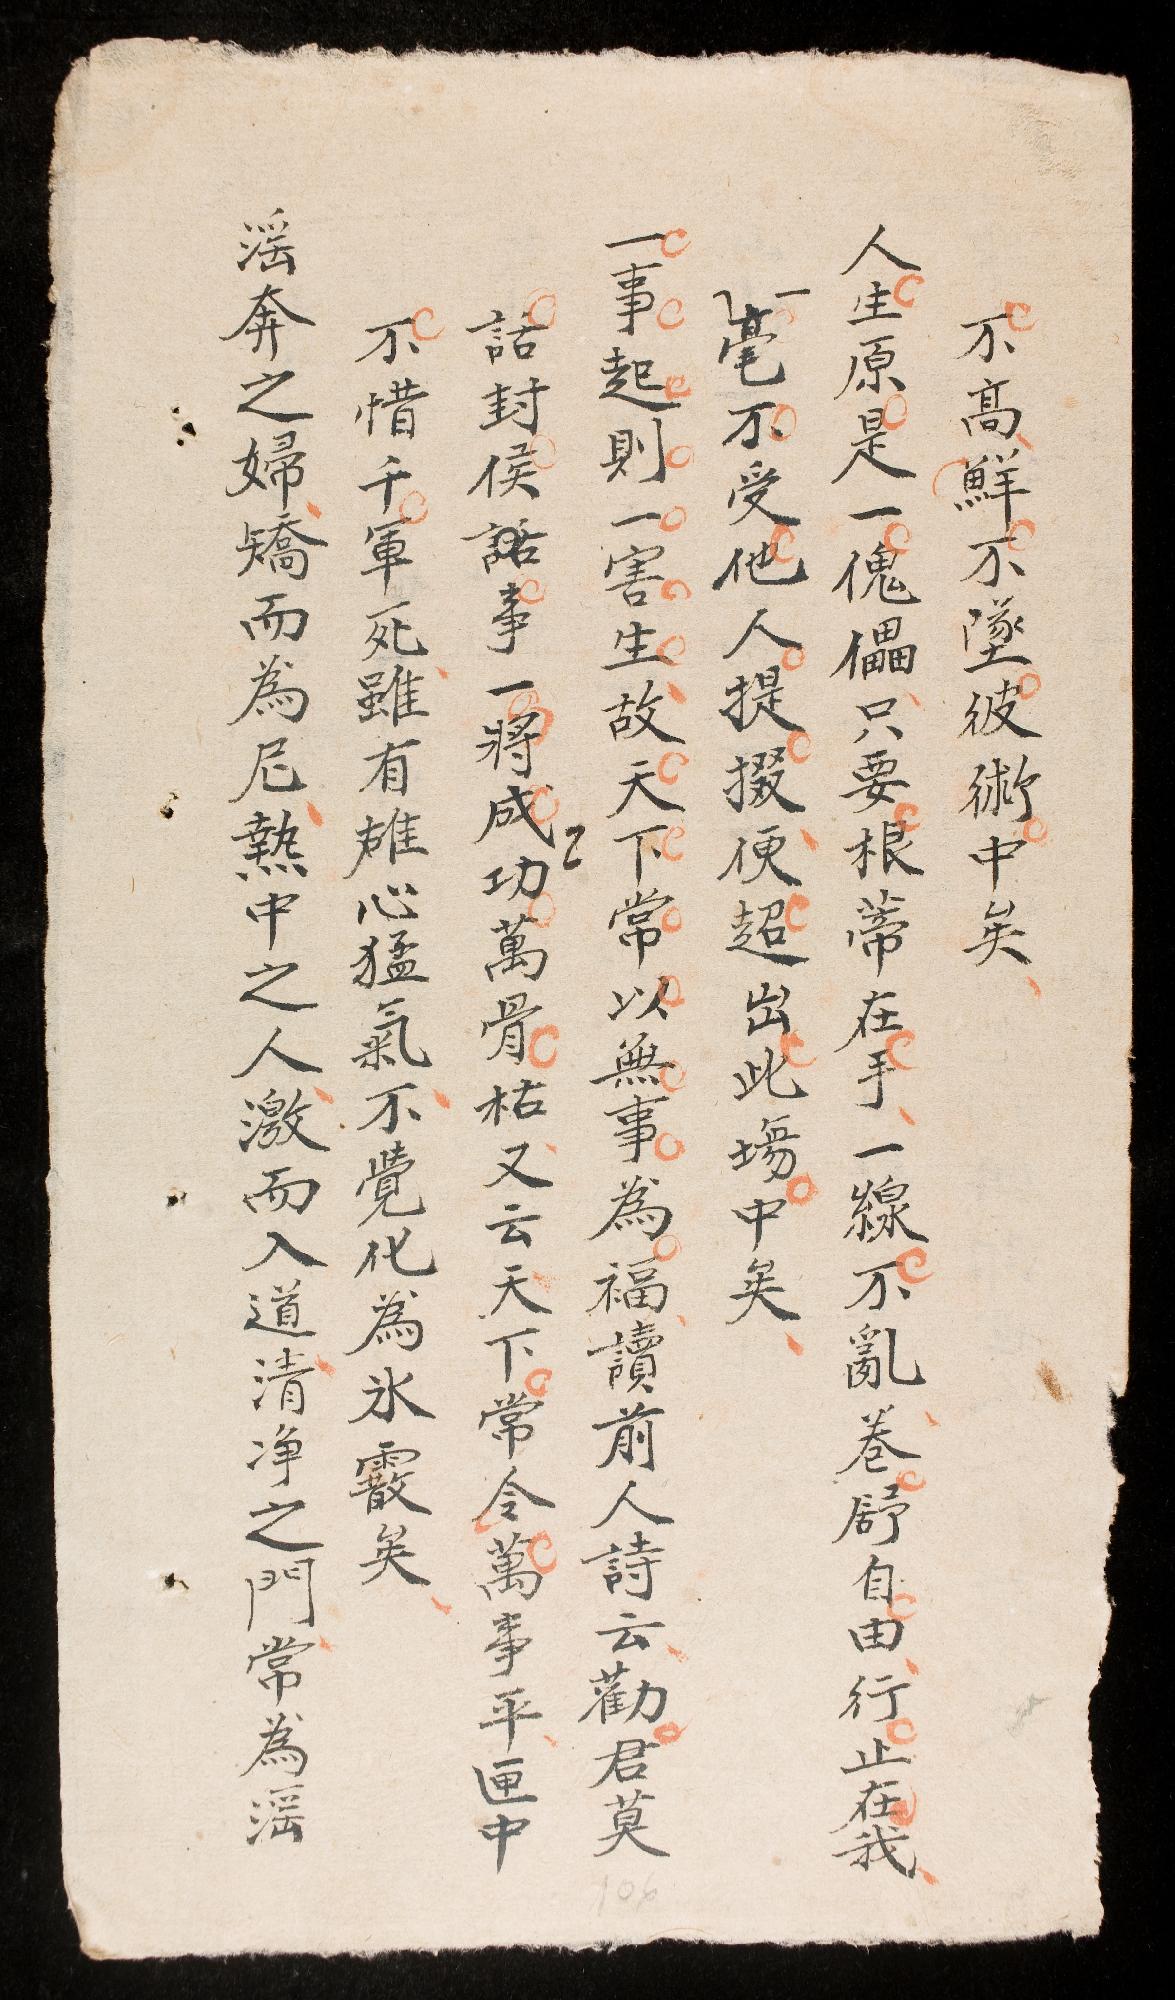 不髙鮮不墜彼術中矣
人生原是一傀儡只要根蒂在手一線不亂巻舒自由行止在我
一毫不受他人提掇便超出此塲中矣
一事起則一害生故天下常以無事為福讀前人詩云勸君莫
話封侯話事一將成功萬骨枯又云天下常令萬事平匣中
不惜千軍死雖有雄心猛氣不覺化為氷霰矣
滛奔之婦矯而為尼熱中之人激而入道清净之門常為滛
106